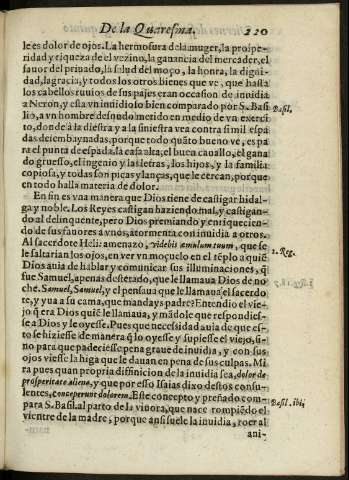 De la Quaresma. 220
le es dolor de ojos. La hermosura de la muger, la prospe-
ridad y riqueza de el vezino, la ganancia del mercader, el
fauor del priuado, la salud del moço, la honra, la digni-
dad, la gracia, y todos los otros bienes que vè, que hasta
los cabellos ruuios de sus pajes eran occasion de inuidia
a Neron, y esta vn inuidioso bien comparado por S. Basi
lio, a vn hombre desnudo metido en medio de vn exerci
to, donde a la diestra y a la siniestra vea contra si mil espa
das desembaynadas, porque todo quãto bueno vè, es pa
ra el punta de espada, la casa alta, el buen cauallo, el gana
do gruesso, el ingenio y las letras, los hijos, y la familia
copiosa, y todas son picas y lanças, que le cercan, porque
en todo halla materia de dolor.
Basil.
En fin es vna manera que Dios tiene de castigar hidal-
ga y noble. Los Reyes castigan haziendo mal, y castigan-
do al delinquente, pero Dios premiando y enriquecien-
do de sus fauores a vnos, atormenta con inuidia a otros.
Al sacerdote Heli: amenazo, videbis æmulum tuum, que se
le saltarian los ojos, en ver vn moçuelo en el tẽplo a quiẽ
Dios auia de hablar y comunicar sus illuminaciones, q̃
fue Samuel, apenas destetado, que le llamaua Dios de no
che. Samuel, Samuel, y el pensaua que le llamaua el sacerdo
te, y yua a su cama, que manda ys padre? Entendio el vie-
jo q̃ era Dios quiẽ le llamaua, y mãdole que respondies-
se a Dios y le oyesse. Pues que necessidad auia de que es-
to se hiziesse de manera q̃ lo oyesse y supiesse el viejo, si-
no para que padeciesse pena graue de inuidia, y con sus
ojos viesse la higa que le dauan en pena de sus culpas. Mi
ra pues quan propria diffinicion de la inuidia sea, dolor de
prosperitate aliena, y que por esso Isaias dixo destos consu-
lentes, conceperunt dolorem. Este concepto y preñado com-
para S. Basil. al parto de la viuora, que nace rompiẽdo el
vientre de la madre, porque ansi suele la inuidia, roer al
1. Reg.
Basil. ibi,
ani-